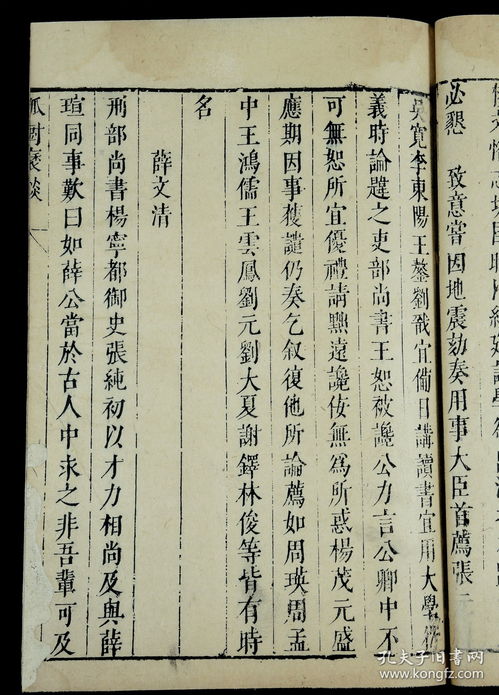 必懇 致意嘗因地震劾奏用事大臣首薦張
吳寬李東陽王鏊劉戩宜備日講讀書宜用大學衍
義時論韙之吏部尚書王恕被讒公力言公卿中不
可無恕所宜優禮請黜遠讒佞無爲所惑楊茂元盛
應期因事獲譴仍奏乞叙復他所論薦如周瑛周孟
中王鴻儒王雲鳳劉元劉大夏謝鐸林俊等皆有時
名
薛文清
刑部尚書楊寧都御史張純初以才力相尚及與薛
瑄同事歎曰如薛公當於古人中求之非吾輩可及
孤樹裒談
孔夫子旧书网
www.kongfz.com